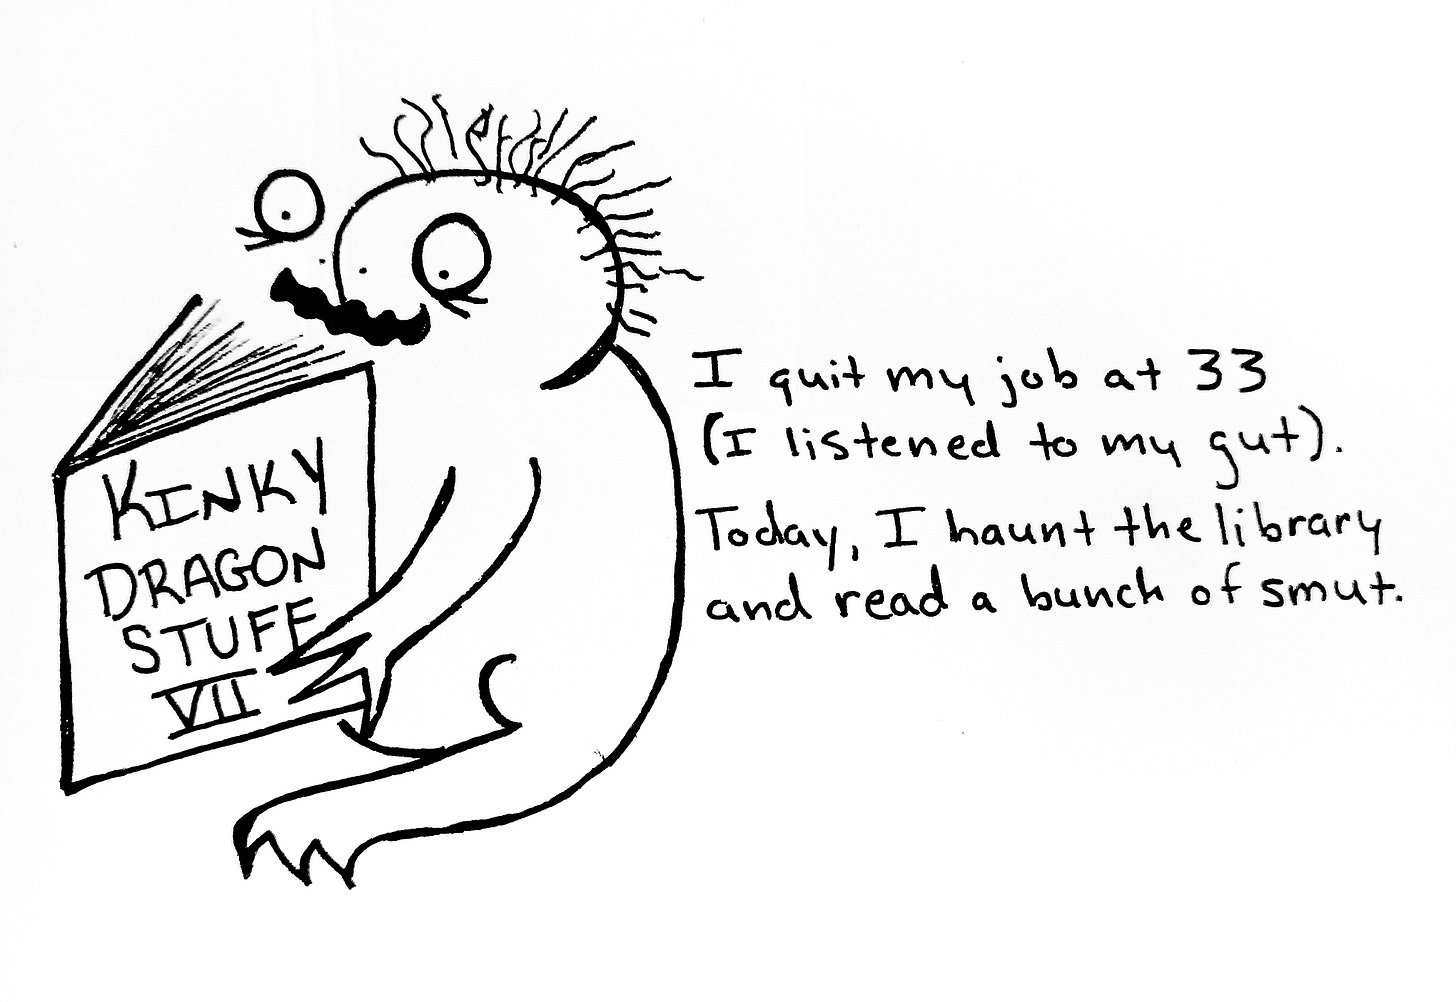 KINKY
DRAGON
STUFF
VII
I quit my job at 33
(I listened to my gut).
Today, I haunt the library
and read a bunch of smut.